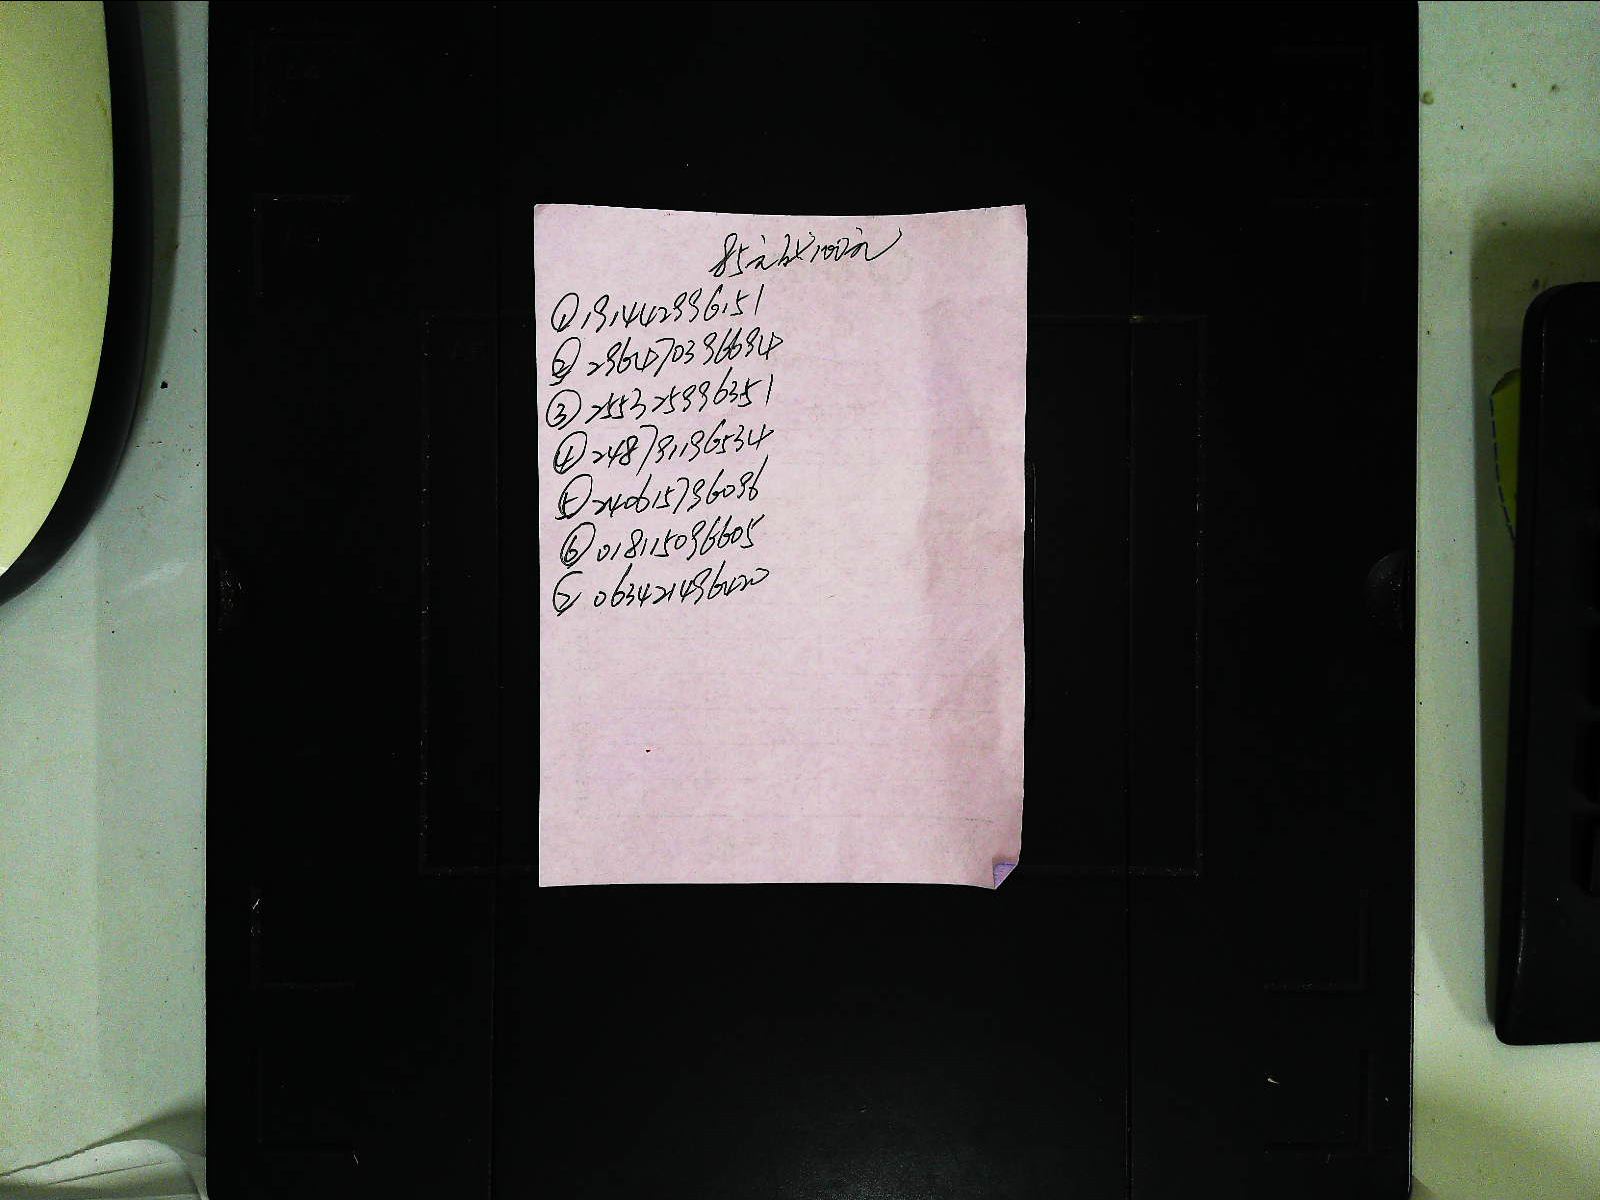 85元改100元
① 191442996151
② 296470396694
③ 255325996351
④ 248791196534
⑤ 240615796096
⑥ 018115096605
⑤ 063421496420